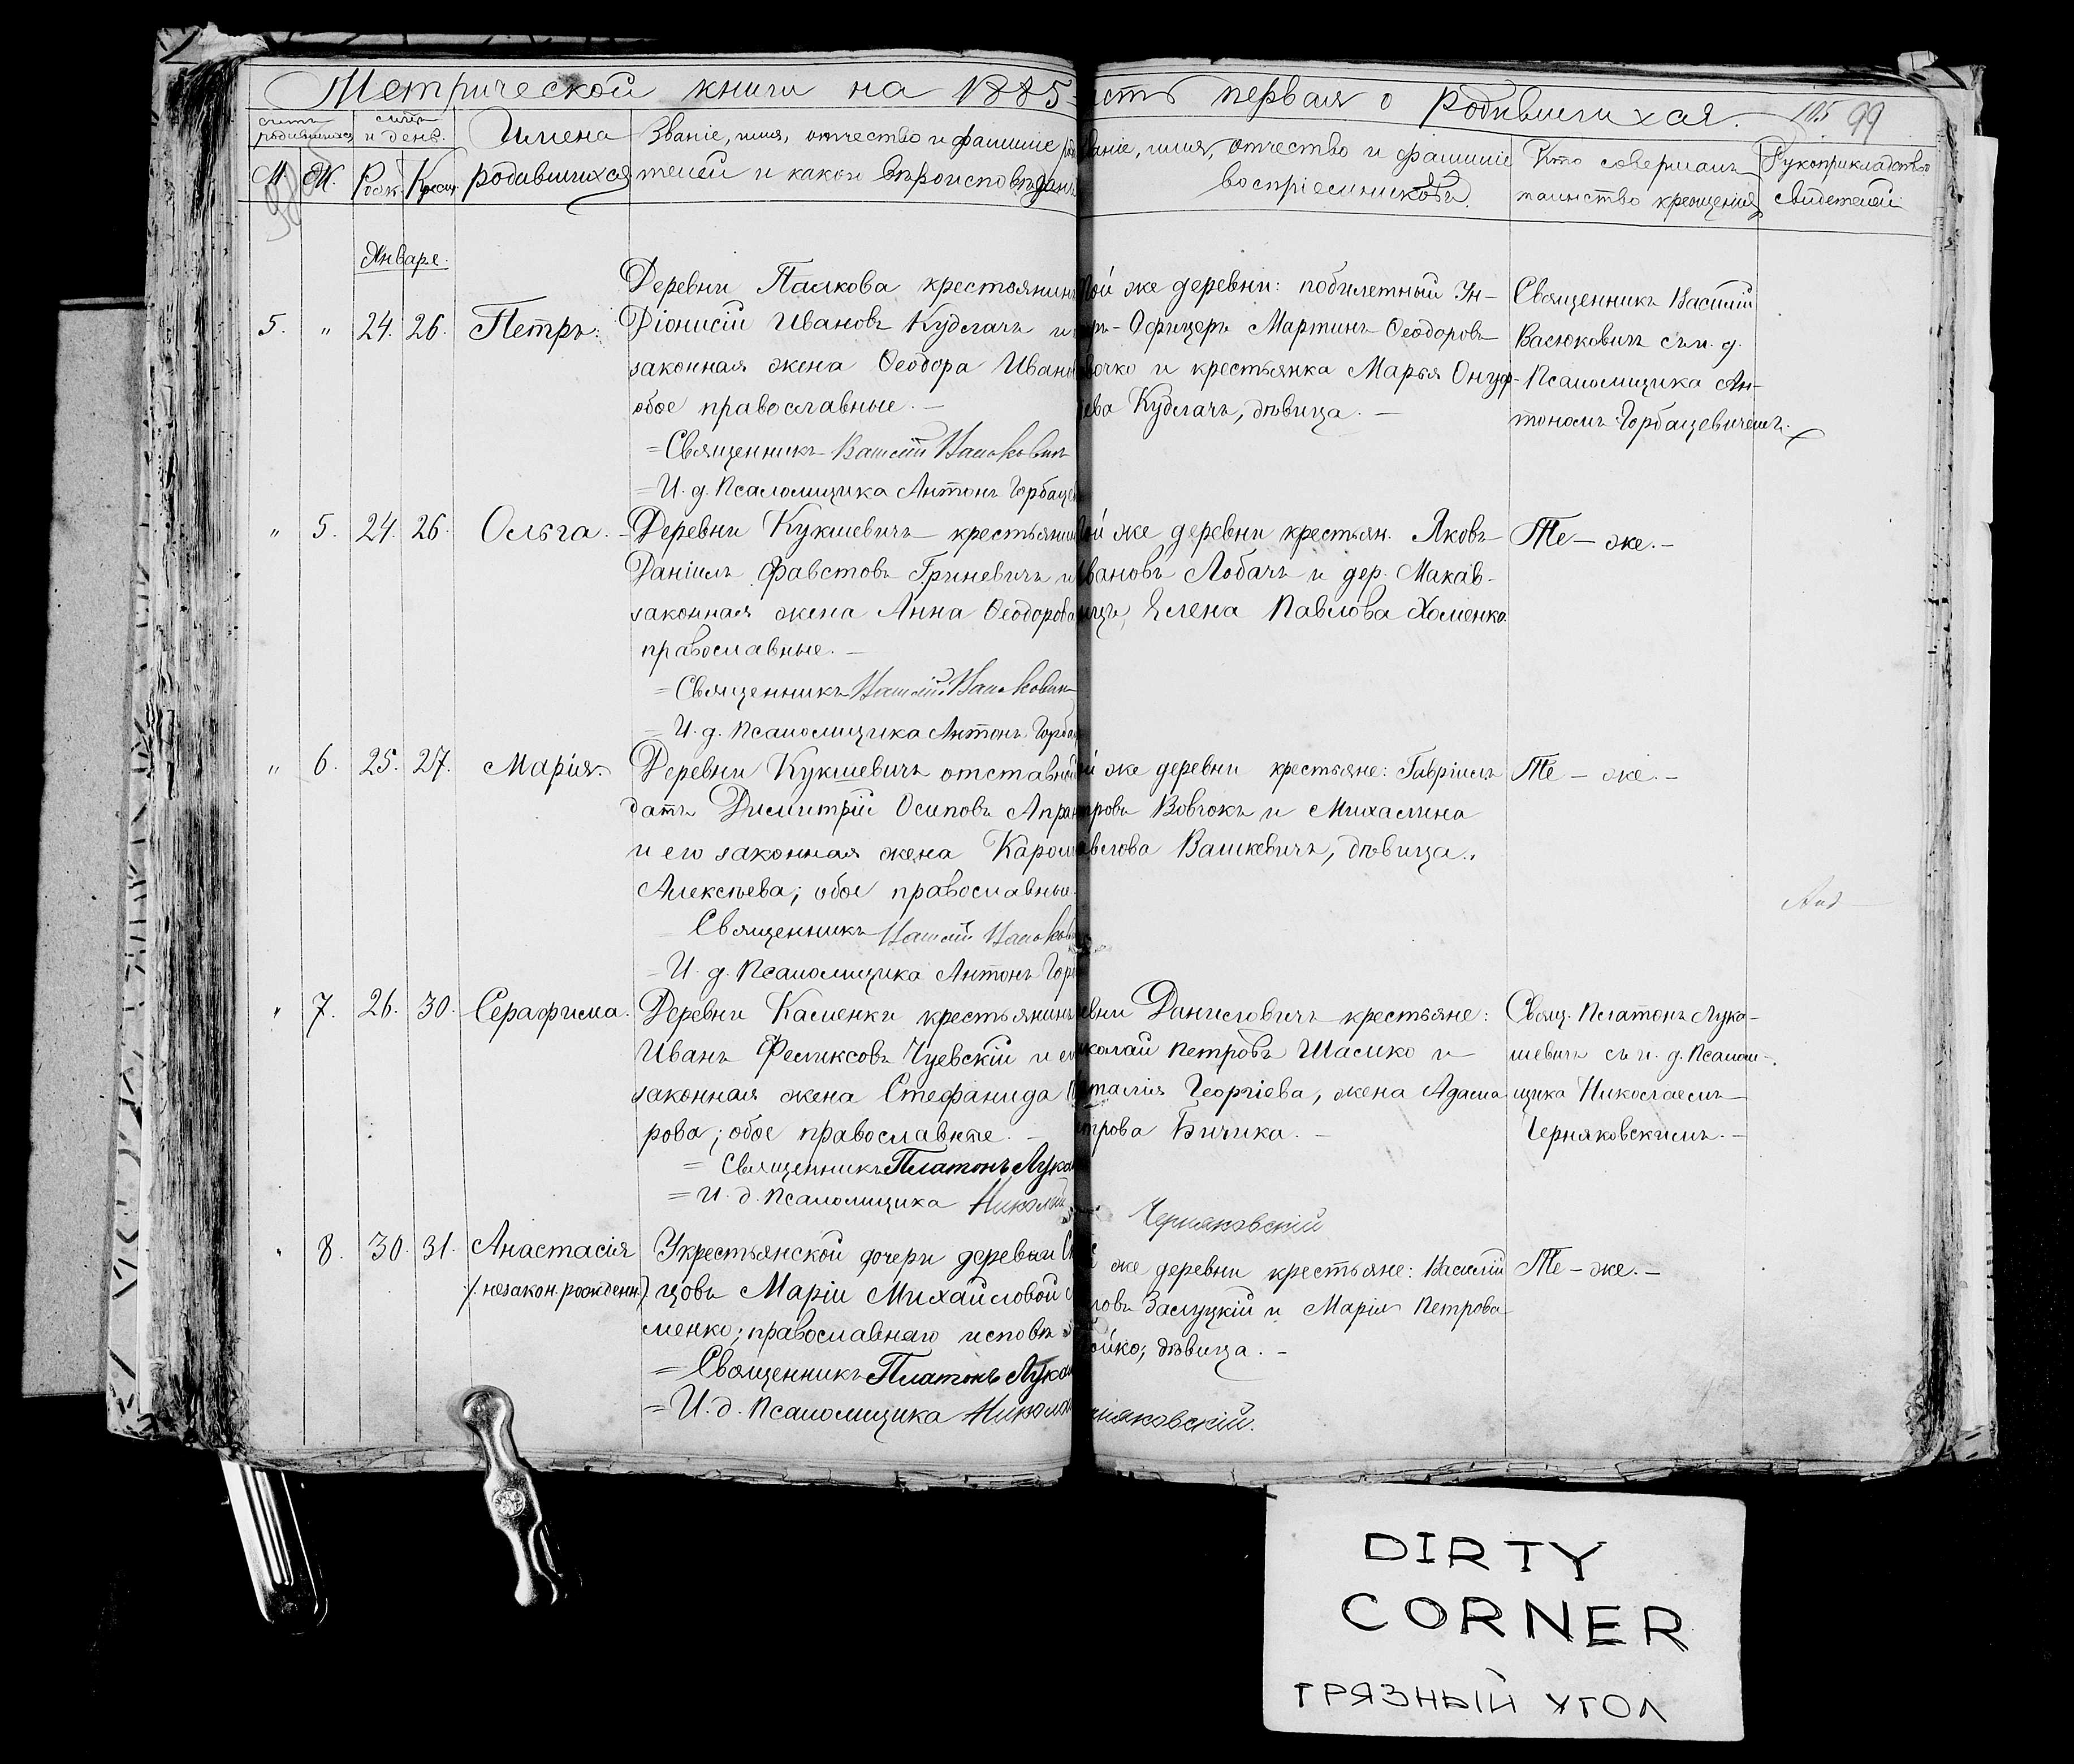 Метрической книги на 1885
сть первая о родившихся.
105 99
счетъ родившихся
М. Ж.
и день.
Рожд. Крещ.
Имена
родившихся
Званіе, имя, отчество и фамиліе
телей и какой вѣроисповѣдан
ваніе, имя, отчество и фамиліе
воспріемниковъ.
Кто совершалъ
таинство крещенія
Рукоприкладство
свидетелей
Январе.
5. " 24. 26. Петръ.
Деревни Палкова крестьянинъ
Діонисій Ивановъ Кудлачъ и
законная жена Ѳеодора Иван
обое православные. —
= Священникъ Василій Васюковичъ
= И. д. Псаломщика Антонъ Горбаце
той же деревни: побилетный Ун-
ръ-Офицеръ Мартинъ Ѳеодоровъ
вочко и крестьянка Марья Онуф-
ева Кудлачъ, дѣвица. —
Священникъ Василій
Васюковичъ съ и. д.
Псаломщика Ан-
тономъ Горбацевичемъ.
" 5. 24. 26. Ольга. —
Деревни Кукшевичъ крестьянин
Даніилъ Фавстовъ Гриневичъ и
законная жена Анна Ѳеодорова
православные. —
= Священникъ Василій Васюковичъ
= И. д. Псаломщика Антонъ Горба
той же деревни крестьян. Яковъ
Ивановъ Лобачъ и дер. Макав-
ицъ, Елена Павлова Хоменко.
Те — же. —
" 6. 25. 27. Марія.
Деревни Кукшевичъ отставной
датъ Димитрій Осиповъ Апра
и его законная жена Карол
Алексѣева; обое православные.
Священникъ Василій Васюков
= И. д. Псаломщика Антонъ Гор
й же деревни крестьяне: Гавріилъ
тровъ Вовчокъ и Михалина
авлова Вашкевичъ, дѣвица.
Те — же. —
" 7. 26. 30. Серафима.
Деревни Каменки крестьянинъ
Иванъ Феликсовъ Чуевскій и ег
законная жена Стефанида П
рова; обое православные. —
= Священникъ Платонъ Лука
= И. д. Псаломщика Николай
Черняковскій
евни Даниловичъ крестьяне:
колай Петровъ Шалико и
талія Георгіева, жена Адама
трова Бичика. —
Свящ. Платонъ Лука-
шевичъ съ и. д. Псалом-
щика Николаемъ
Черняковскимъ. —
" 8. 30. 31. Анастасія
(незакон. рожденн.)
У крестьянской дочери деревни
цовъ Маріи Михайловой
менко; православнаго исповѣ
= Священникъ Платонъ Лука
= И. д. Псаломщика Никола
рняковскій.
же деревни крестьяне: Василій
ловъ Заслуцкій и Марія Петрова
ойко; дѣвица. —
Те — же. —
DIRTY
CORNER
ГРЯЗНЫЙ УГОЛ